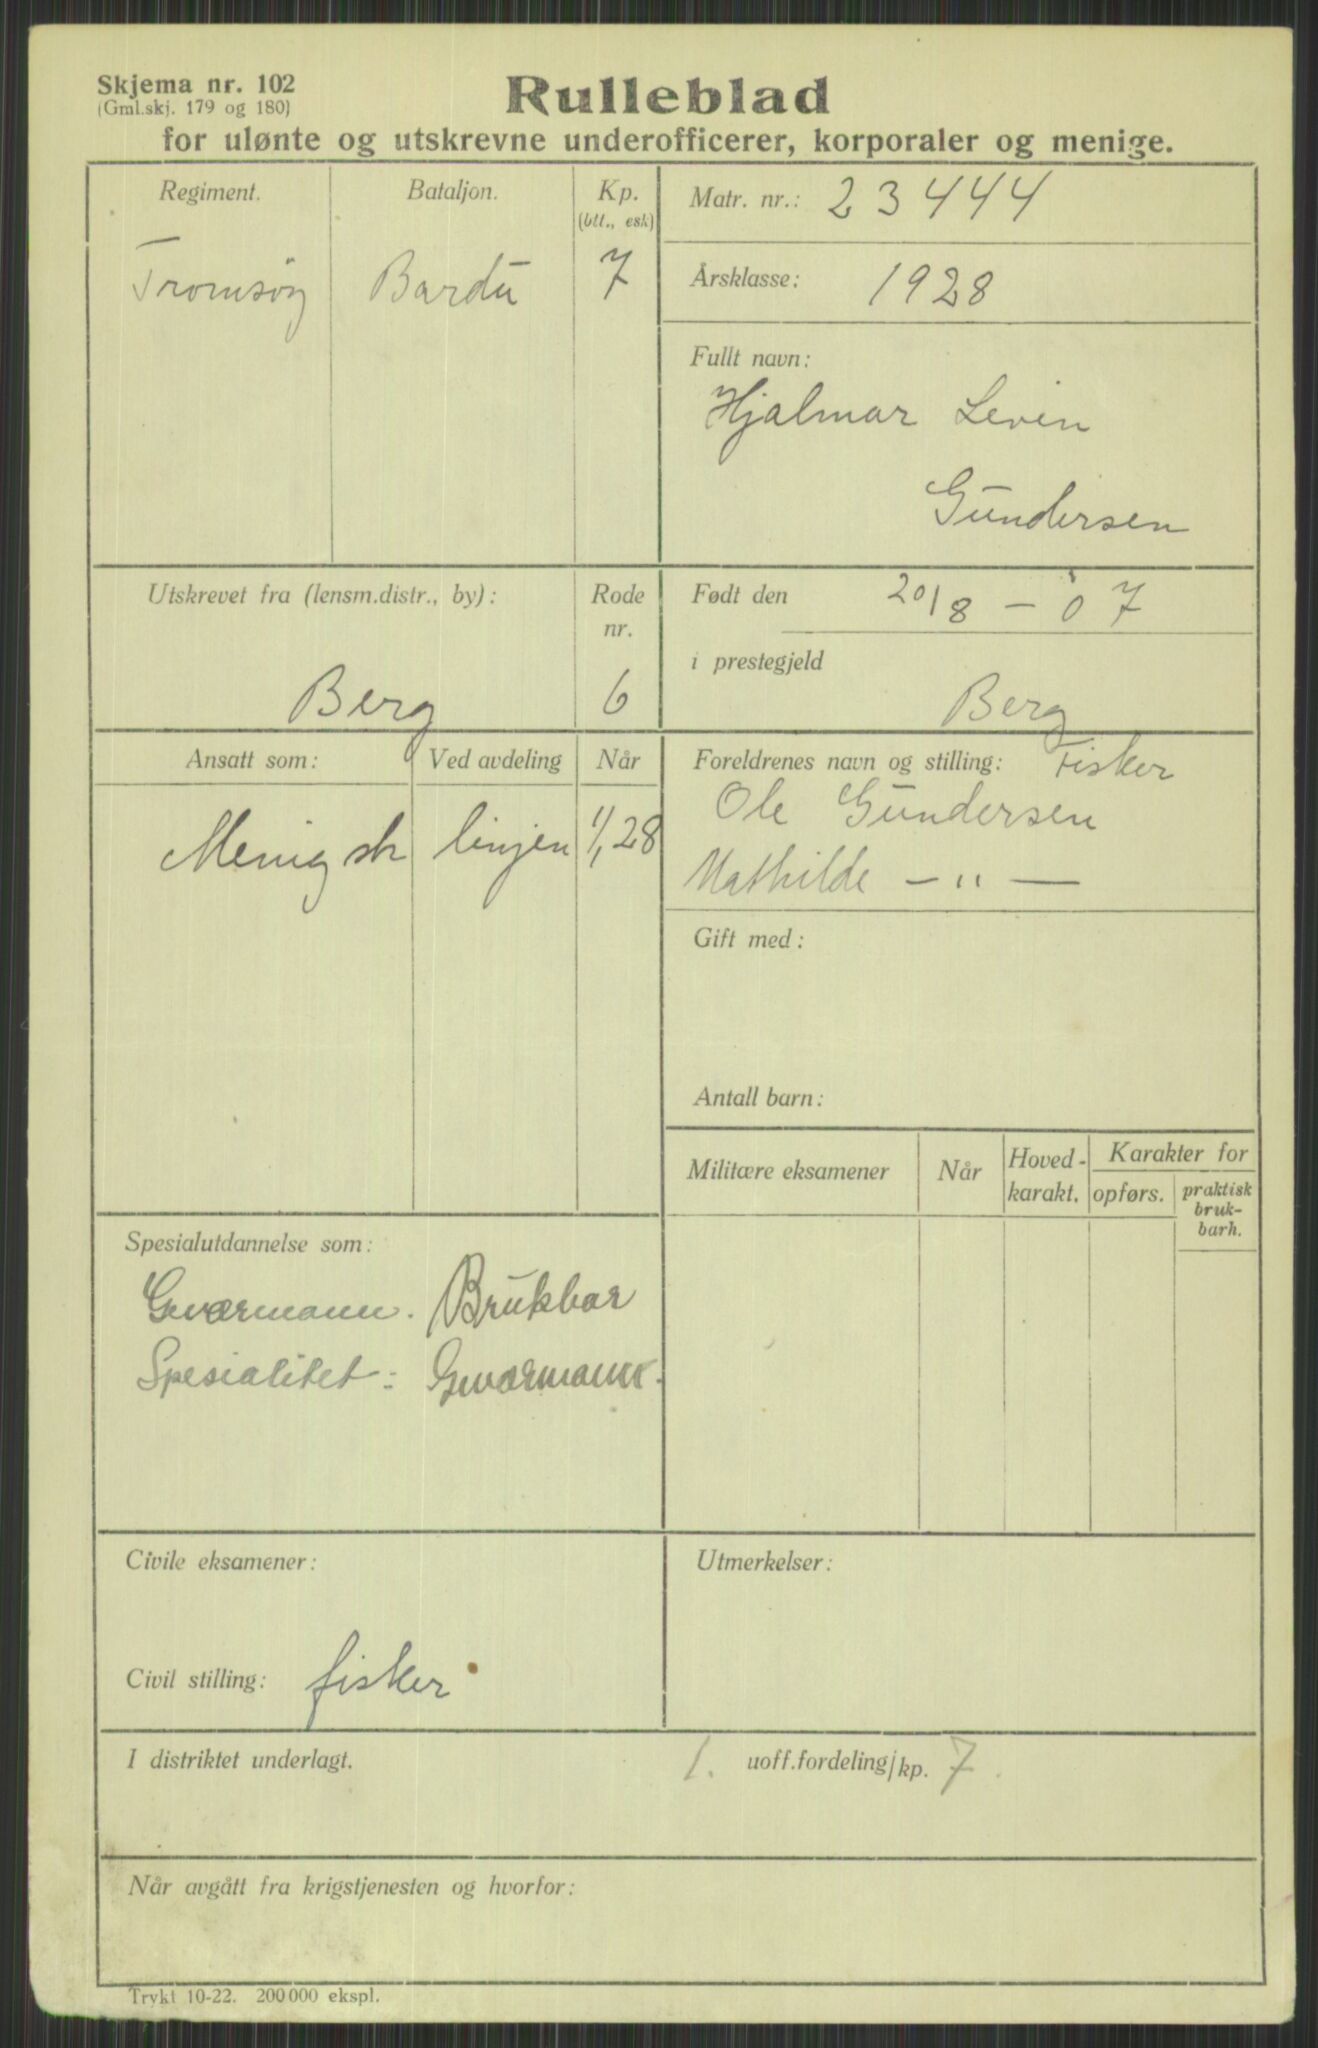 Skjema nr. 102
(Gml.skj. 179 og 180)
Rulleblad
for ulønte og utskrevne underofficerer, korporaler og menige.
Regiment.
Bataljon.
Kp.
(btt., esk)
Tromsøy
Bardu
7
Matr. nr.: 23444
Årsklasse: 1928
Fullt navn:
Hjalmar Levin
Gundersen
Utskrevet fra (lensm.distr., by):
Rode
nr.
Berg
6
Født den 20/8 - 07
i prestegjeld
Berg
Ansatt som:
Ved avdeling
Når
Menig sk
linjen
1/1 28
Foreldrenes navn og stilling: Fisker
Ole Gundersen
Mathilde — " —
Gift med:
Antall barn:
Militære eksamener
Når
Hoved-
karakt.
Karakter for
opførs.
praktisk
bruk-
barh.
Spesialutdannelse som:
Geværmann. Brukbar
Spesialitet: Geværmann.
Civile eksamener:
Civil stilling: fisker
Utmerkelser:
I distriktet underlagt. 1. uoff.fordeling/kp. 7.
Når avgått fra krigstjenesten og hvorfor:
Trykt 10-22. 200 000 ekspl.